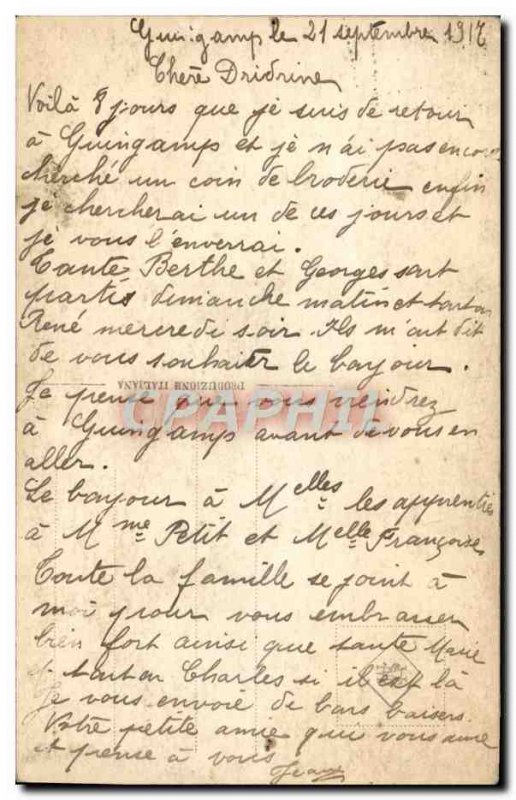 Guingamp le 21 septembre 1917
Chere Dridrine
Voilà 8 jours que je suis de retour
à Guingamp et je n'ai pas encore
cherché un coin de broderie enfin
je chercherai un de ces jours et
je vous l'enverrai.
Tante Berthe et Georges sont
partis dimanche matin et tonton
René mercredi soir. Ils m'ont dit
de vous souhaiter le bonjour.
PRODUZIONE ITALIANA
Je pense que vous viendrez
CPAPHIL
à Guingamp avant de vous en
aller.
Le bonjour à Melles les apprenties
à Mme Petit et Melle Françoise
Toute la famille se joint à
moi pour vous embrasser
bien fort ainsi que tante Marie
et tonton Charles si il est là
Je vous envoie de bons baisers.
Votre petite amie qui vous aime
et pense à vous